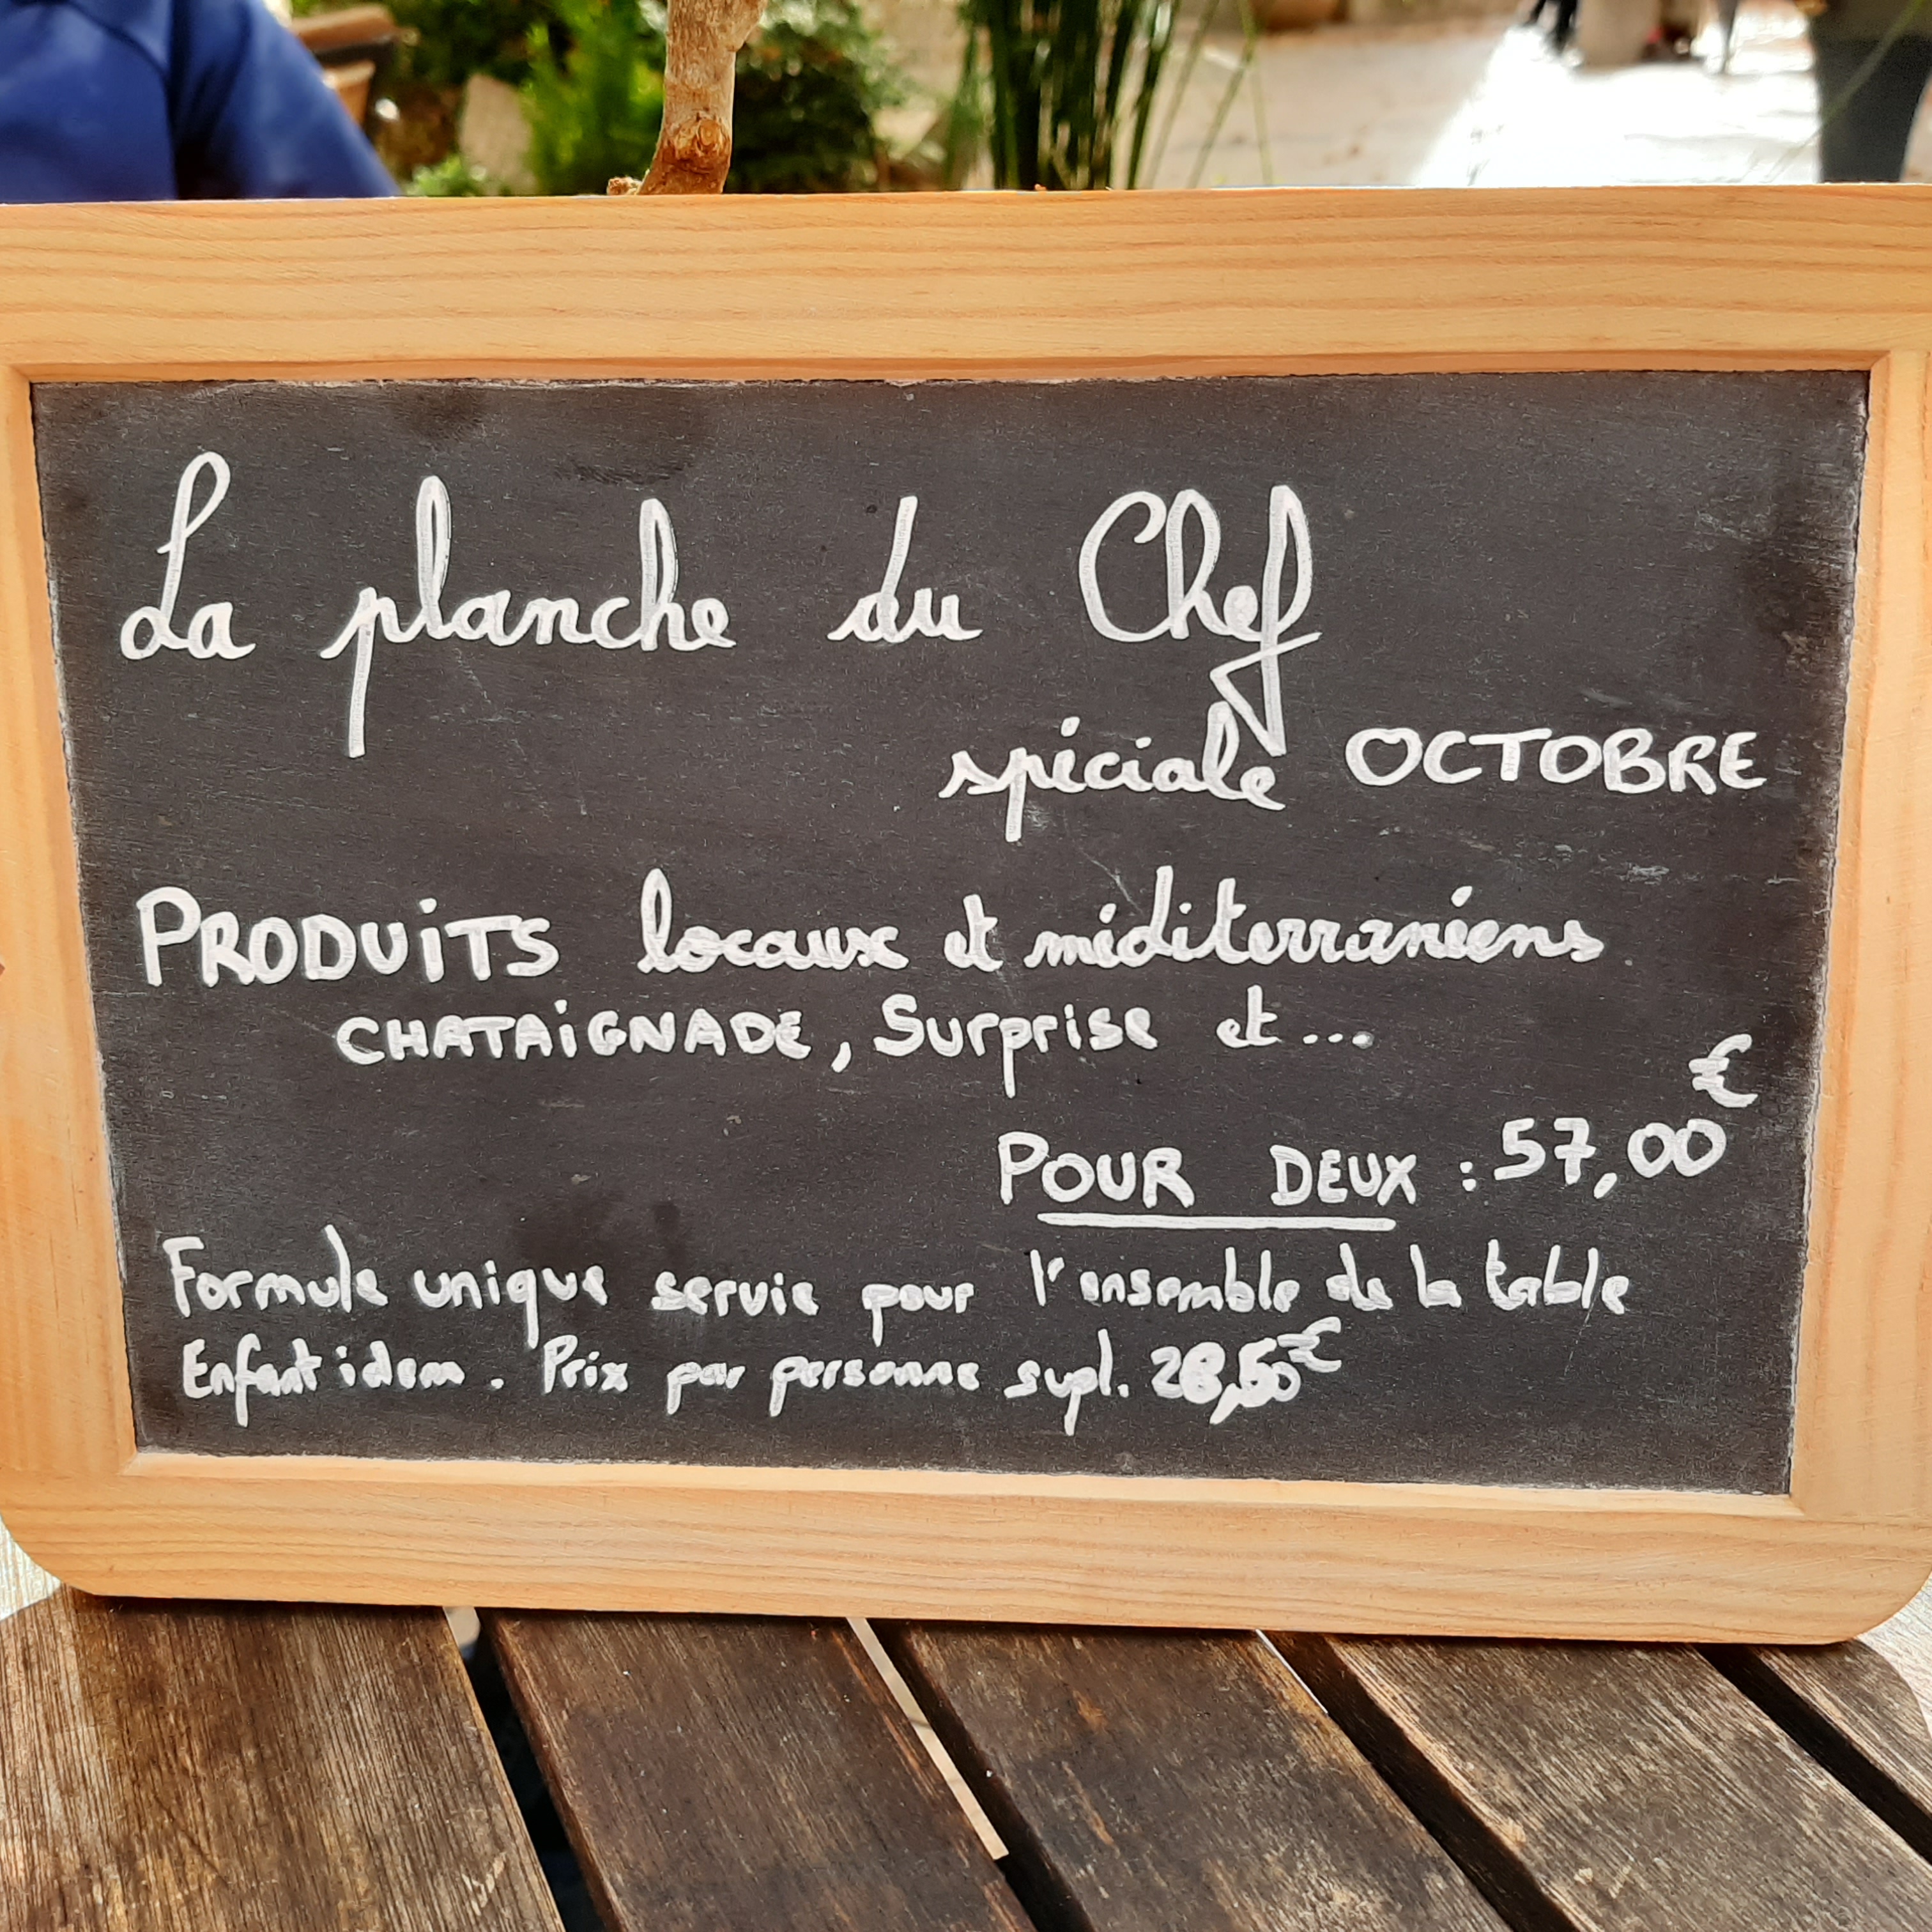 La planche du Chef
spéciale OCTOBRE
PRODUITS locaux et méditerranéens
CHATAIGNADE, Surprise et...
POUR DEUX : 57,00 €
Formule unique servie pour l'ensemble de la table
Enfant idem. Prix par personne supl. 28,50€